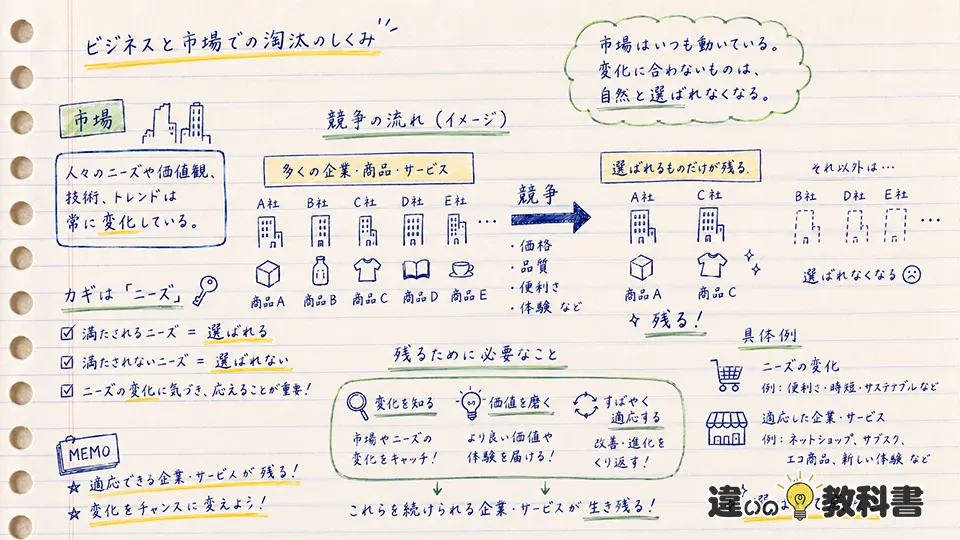 ビジネスと市場での淘汰のしくみ
市場はいつも動いている。
変化に合わないものは、
自然と選ばれなくなる。
市場
人々のニーズや価値観、
技術、トレンドは
常に変化している。
競争の流れ（イメージ）
多くの企業・商品・サービス
A社 B社 C社 D社 E社 …
商品A 商品B 商品C 商品D 商品E
競争
・価格
・品質
・便利さ
・体験 など
選ばれるものだけが残る。
A社 C社
商品A 商品C
残る！
それ以外は…
B社 D社 E社 …
選ばれなくなる
カギは「ニーズ」
満たされるニーズ = 選ばれる
満たされないニーズ = 選ばれない
ニーズの変化に気づき、応えることが重要！
残るために必要なこと
変化を知る
市場やニーズの
変化をキャッチ！
価値を磨く
より良い価値や
体験を届ける！
すばやく
適応する
改善・進化を
くり返す！
これらを続けられる企業・サービスが 生き残る！
具体例
ニーズの変化
例：便利さ・時短・サステナブルなど
適応した企業・サービス
例：ネットショップ、サブスク、
エコ商品、新しい体験 など
MEMO
適応できる企業・サービスが残る！
変化をチャンスに変えよう！
違いの教科書